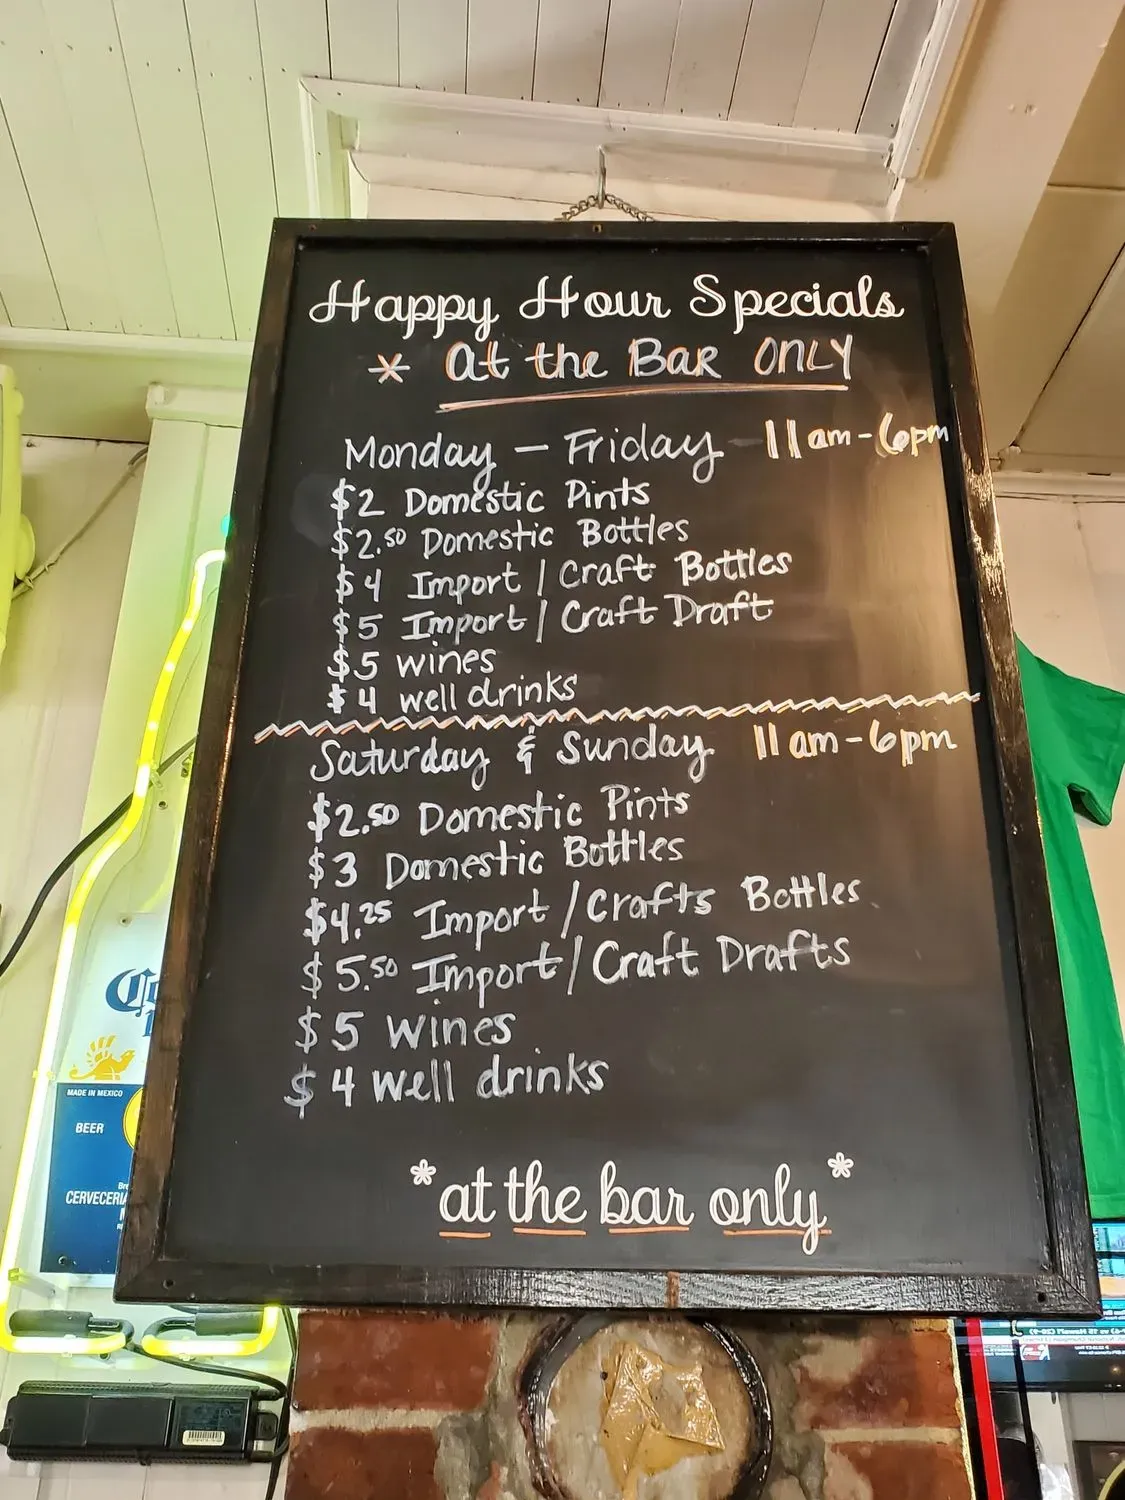 Happy Hour Specials
* at the Bar ONLY
Monday - Friday 11am-6pm
$2 Domestic Pints
$2.50 Domestic Bottles
$4 Import / Craft Bottles
$5 Import / Craft Draft
$5 wines
$4 well drinks
Saturday & Sunday 11am-6pm
$2.50 Domestic Pints
$3 Domestic Bottles
$4.25 Import / Crafts Bottles
$5.50 Import / Craft Drafts
$5 wines
$4 well drinks
*at the bar only*
MADE IN MEXICO
BEER